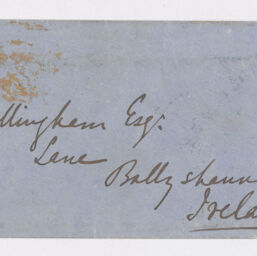 llingham Esq.
Lane
Ballyshann
Irela